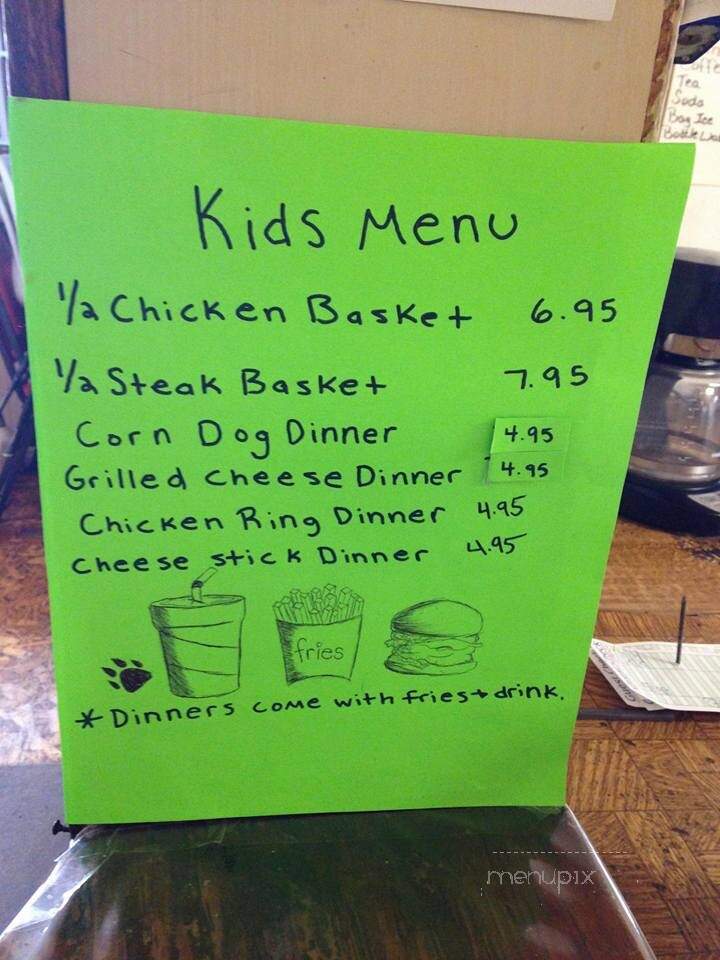 Tea
Soda
Bag Ice
Kids Menu
1/2 Chicken Basket 6.95
1/2 Steak Basket 7.95
Corn Dog Dinner 4.95
Grilled Cheese Dinner 4.95
Chicken Ring Dinner 4.95
Cheese Stick Dinner 4.95
fries
* Dinners come with fries + drink.
menupix